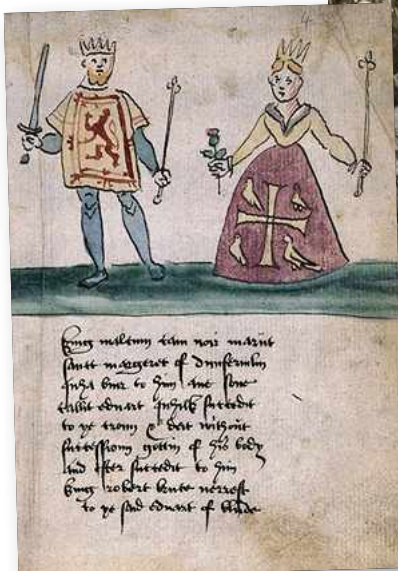 4
king malcum cam noir mariit
sanct margaret of dunfermlin
quha buir to him ane sone
callit eduart quhilk succedit
to ye croun & deit without
successioun gottin of his body
and efter succedit to him
king robert bruce nerrest
to ye said eduart of blude